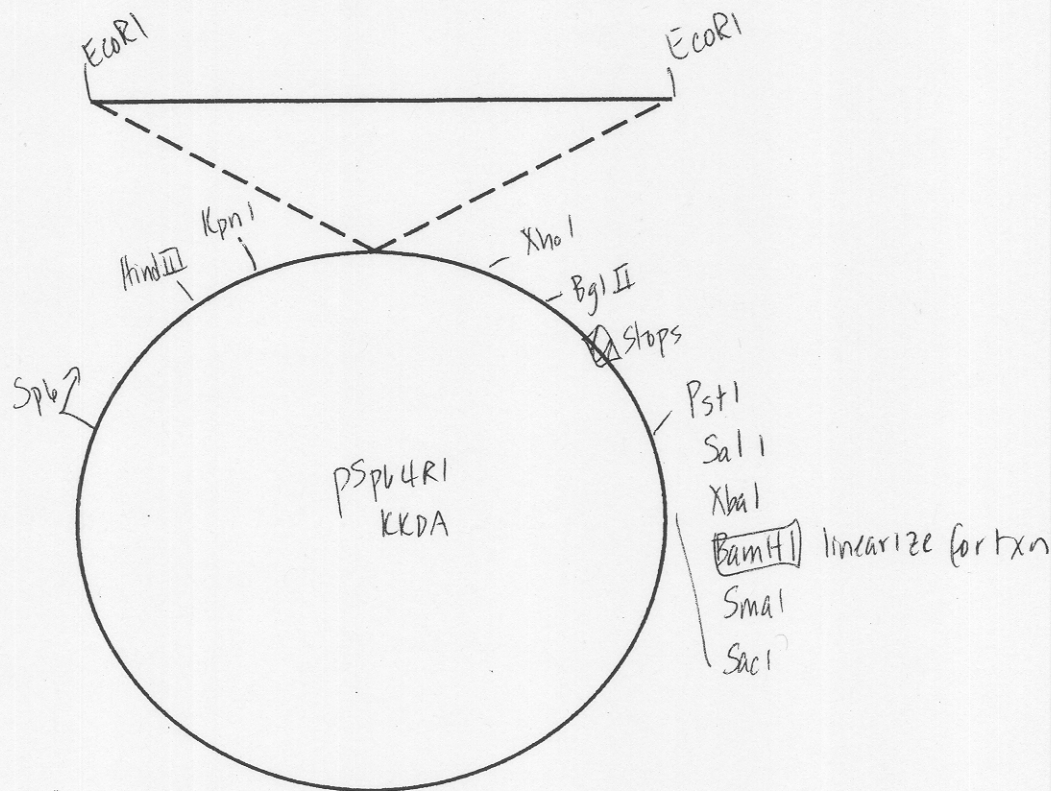 EcoR1
EcoR1
Kpn1
Hind III
Sp6
Xho1
Bgl II
Stops
Pst1
Sal1
Xba1
BamH1 linearize for txn
Sma1
Sac1
pSp64R1
KKDA